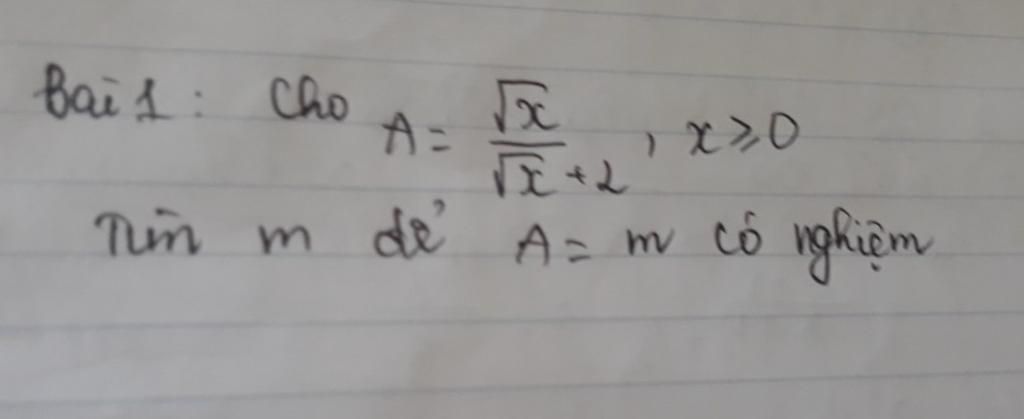 Bài 1: Cho A = \frac{\sqrt{x}}{\sqrt{x}+2}, x ⩾ 0
Tìm m để A = m có nghiệm